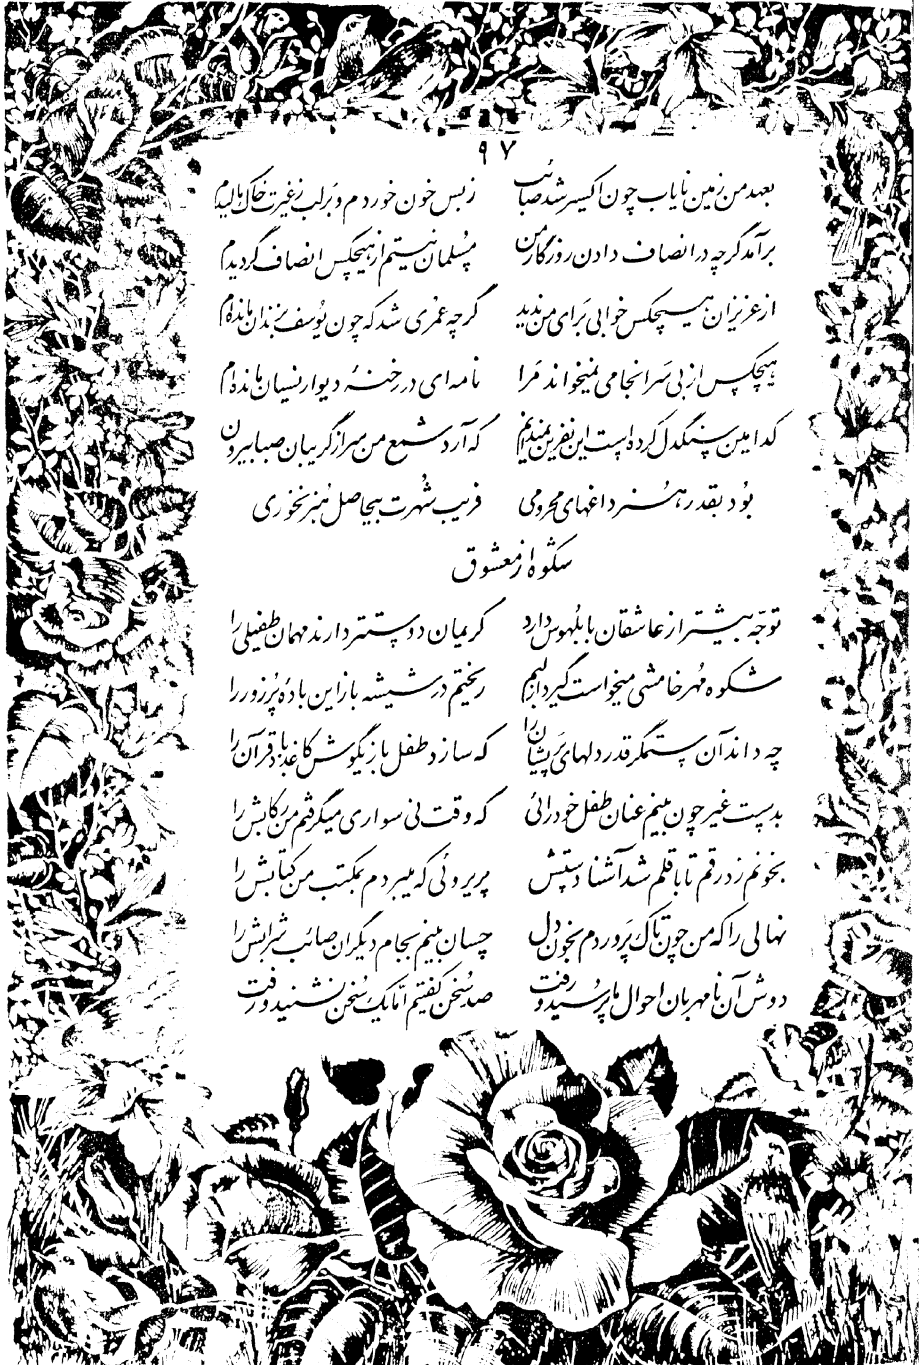 ۹۷
بعهد من زمین نایاب چون اکسیر شد صائب زبس خون خوردم و بر لب ز غیرت خاک مالیدم
برآمد گرچه در انصاف دادن روزگار من مسلمان نیستم از هیچکس انصاف گر دیدم
از عزیزان هیچکس خوابی برای من ندید گرچه عمری شد که چون یوسف بزندان مانده‌ام
هیچکس از بی سرانجامی نمیخواند مرا نامه‌ای در رخنهٔ دیوار نسیان مانده‌ام
کدامین سنگدل کرده است این نفرین نمیدانم که آرد شمع من سر از گریبان صبا بیرون
بود بقدر هنر داغهای محرومی فریب شهرت بیحاصل هنر نخوری
شکوه از معشوق
توجّه بیشتر از عاشقان با بلهوس دارد کریمان دوستتر دارند مهمان طفیلی را
شکوه مهر خامشی میخواست گیرد از لبم ریختم در شیشه باز این بادهٔ پرزور را
چه داند آن ستمگر قدر دلهای پریشان را که سازد طفل بازیگوش کاغذ باد قرآن را
بدست غیر چون بینم عنان طفل خودرائی که وقت نی سواری میگرفتم من رکابش را
بخونم زد رقم تا با قلم شد آشنا دستش پریروئی که میبردم بمکتب من کتابش را
نهالی را که من چون تاک پروردم بخون دل چسان بینم بجام دیگران صائب شرابش را
دوش آن نامهربان احوال ما پرسید و رفت صد سخن گفتیم امّا یک سخن نشنید و رفت